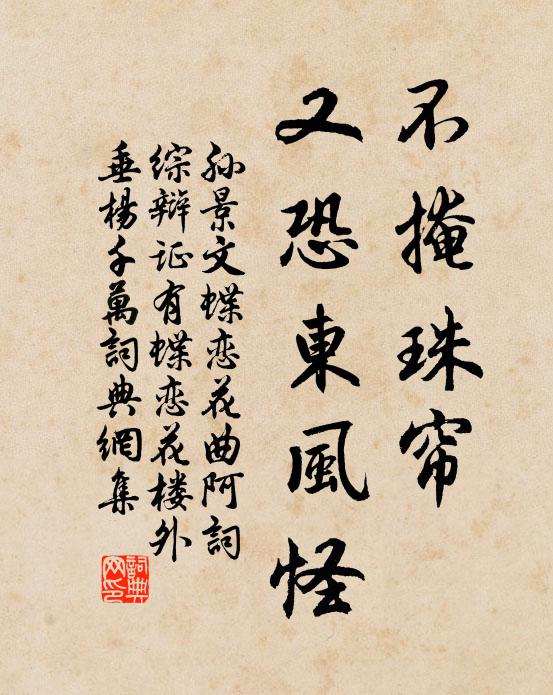 不掩珠帘
又恐東風怪
孙景文蝶恋花曲阿詞
综辩证有蝶恋花楼外
垂楊千萬詞典網集
詞典
网